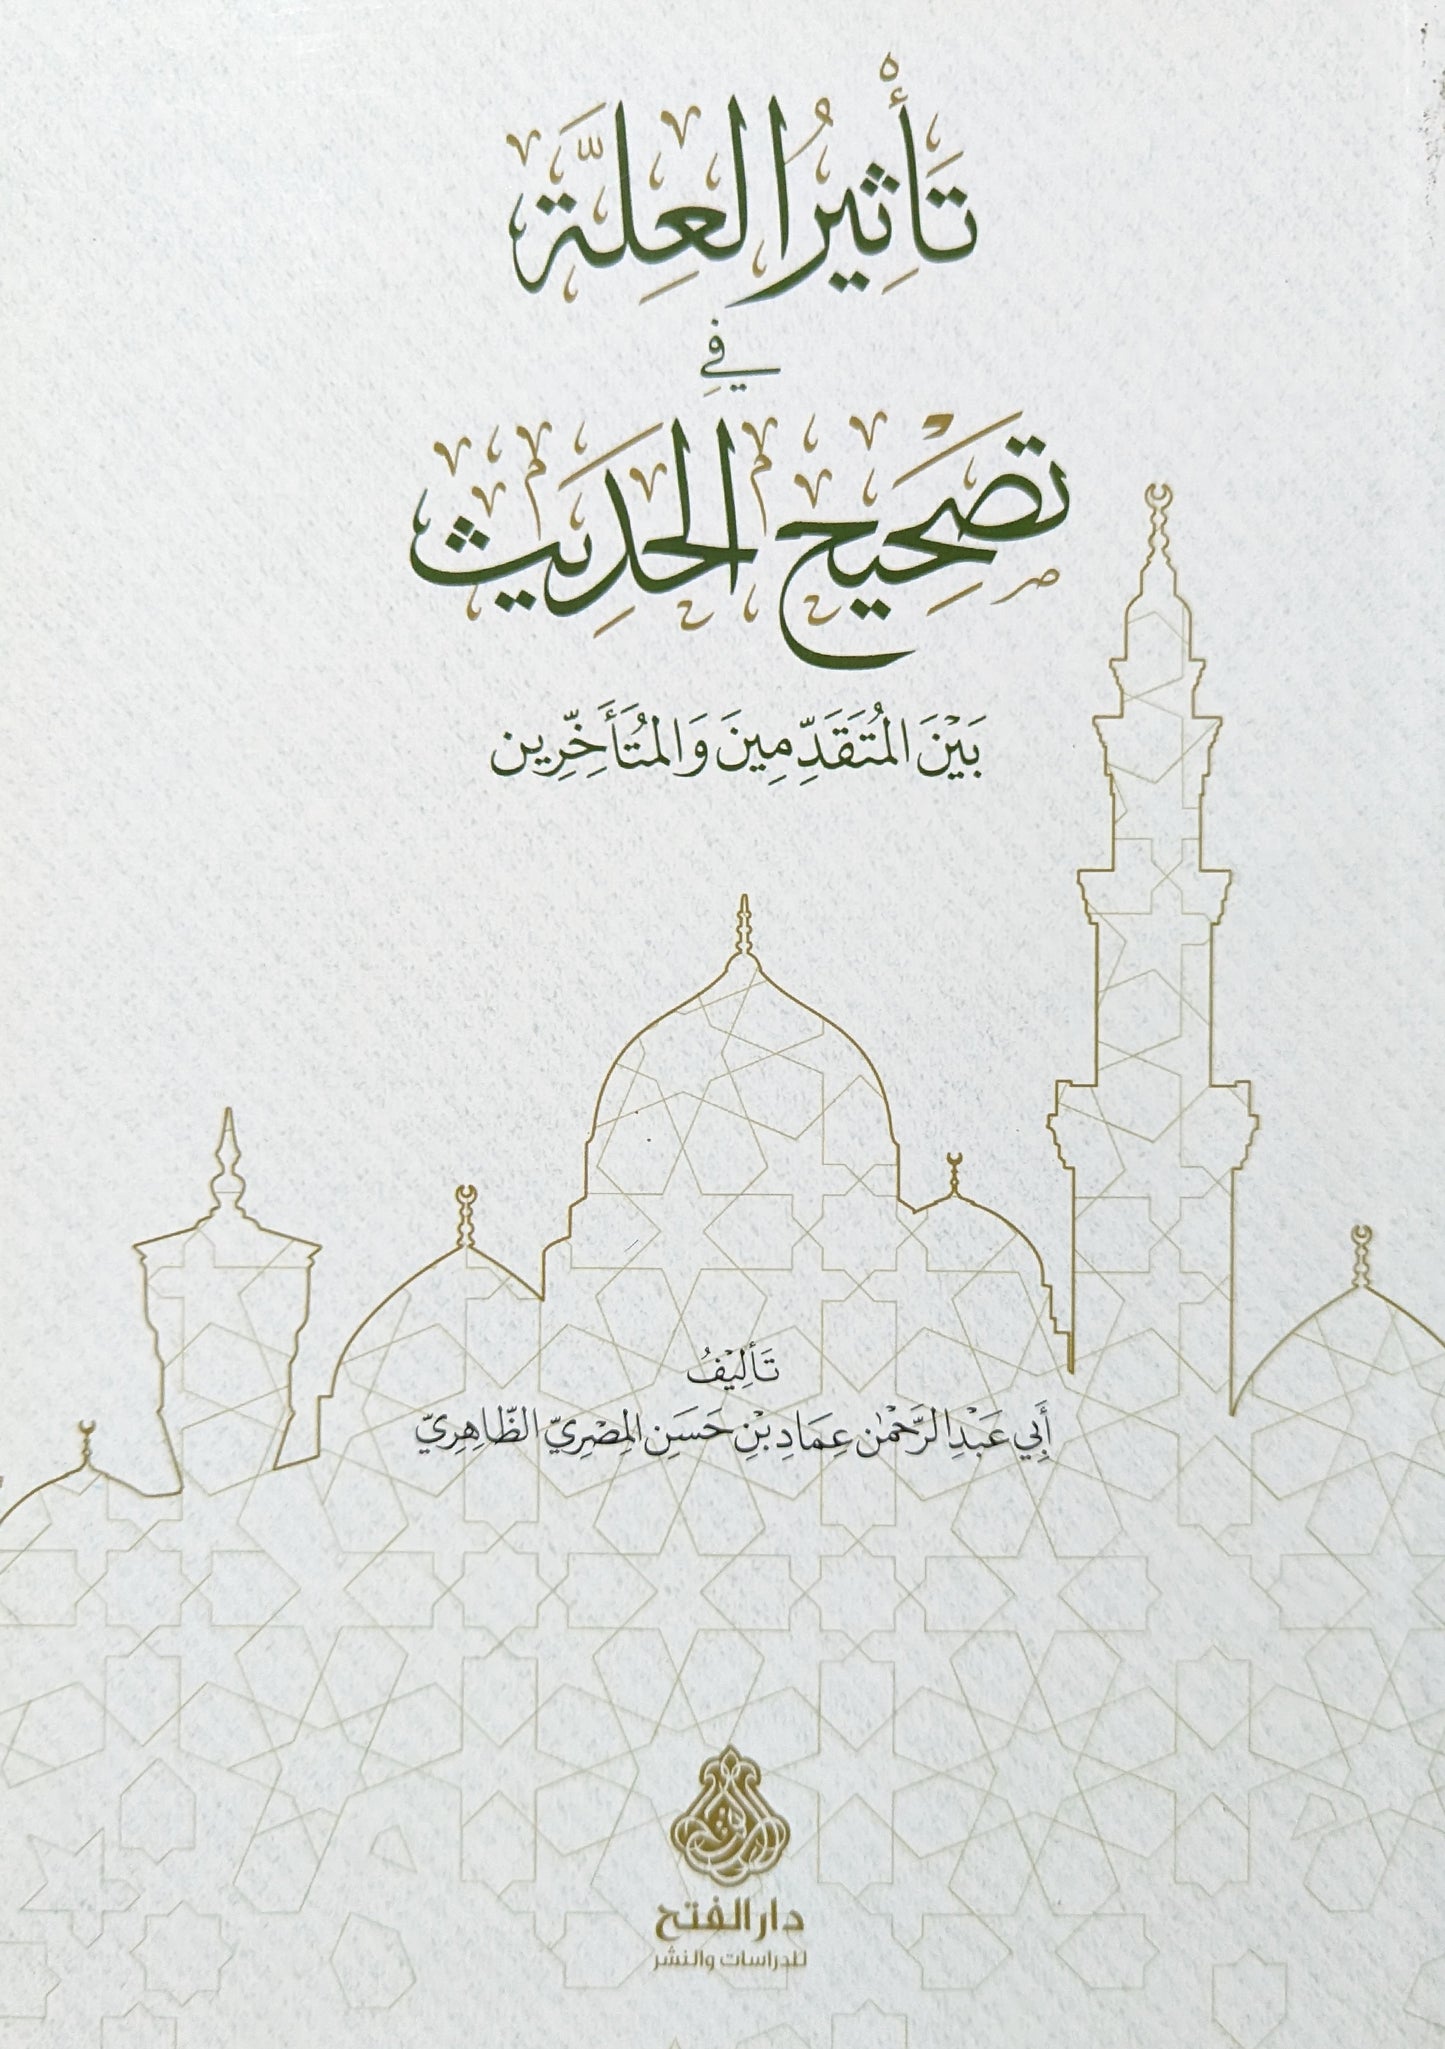 تَأْثِيرُ العِلَّة
فِي
تَصْحِيح الحَدِيث
بَيْنَ المُتَقَدِّمِينَ وَالمُتَأَخِّرِين
تَأْلِيْفُ
أَبِي عَبْدِ الرَّحْمٰن عِمَاد بْنِ حَسَن المِصْرِيّ الظَّاهِرِيّ
دار الفتح
للدراسات والنشر